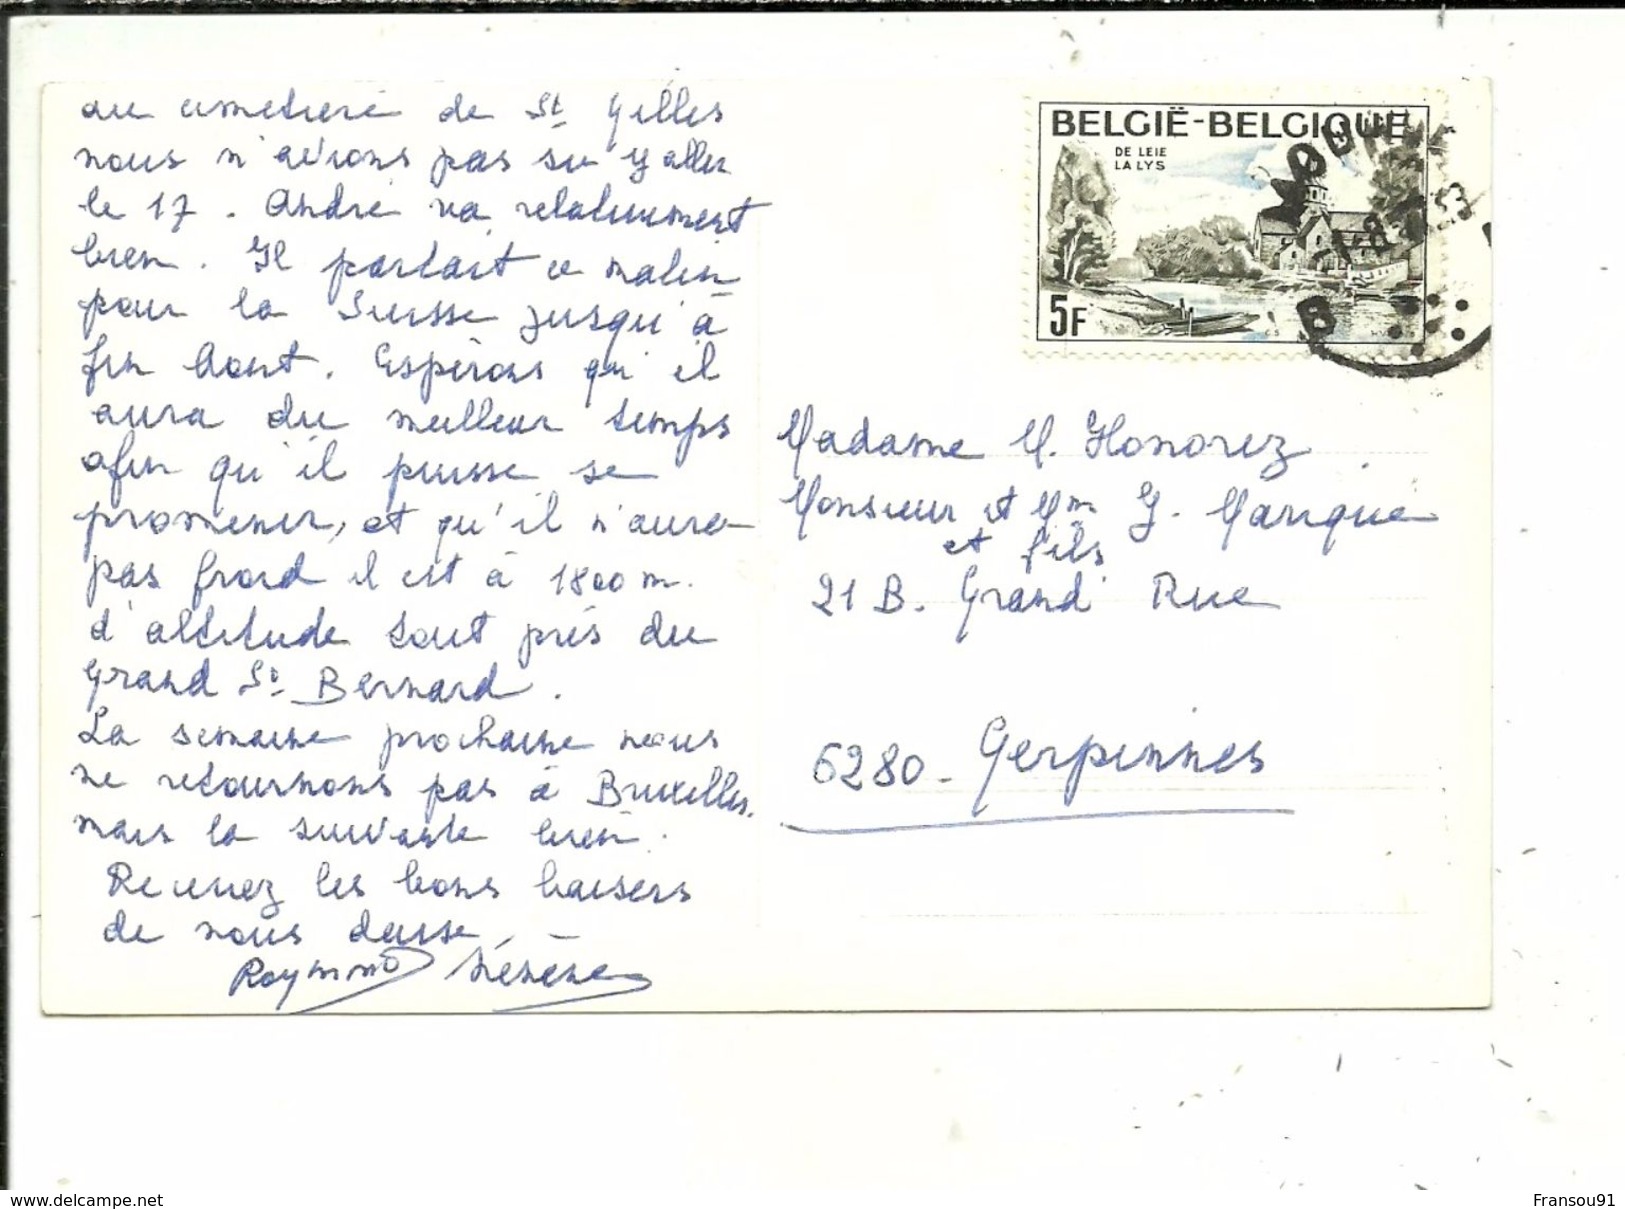 au cimetière de St Gilles
nous n'avions pas su y aller
le 17. André va relativement
bien. Il partait ce matin
pour la Suisse jusqu'à
fin Aout. Espérons qu'il
aura du meilleur temps
afin qu'il puisse se
promener, et qu'il n'aura
pas froid il est à 1800 m.
d'altitude tout près du
Grand St Bernard.
La semaine prochaine nous
ne retournons pas à Bruxelles.
mais la suivante bien.
Recevez les bons baisers
de nous deusse.
Raymond
BELGIË-BELGIQUE
DE LEIE
LA LYS
5F
B
Madame M. Honorez
Monsieur et Mm G. Manque
et fils
21 B. Grand Rue
6280 - Gerpinnes
www.delcampe.net
Fransou91